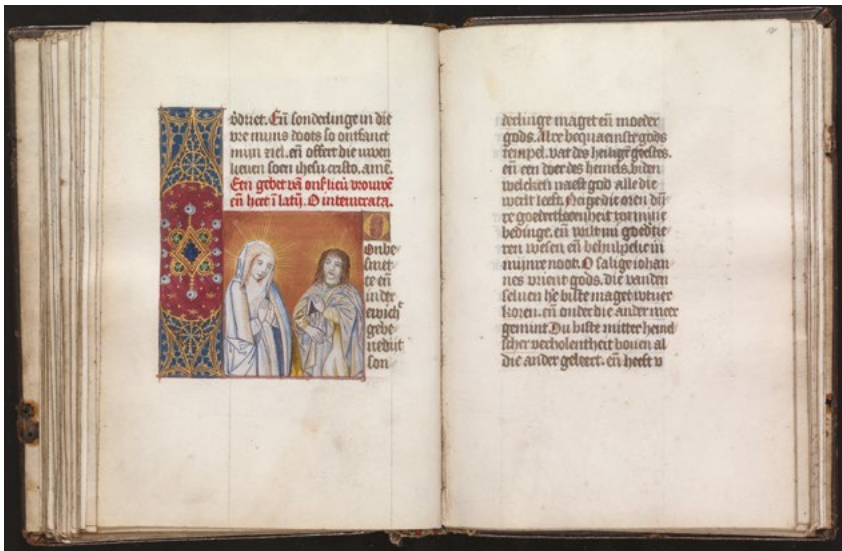 v̄driet. En̄ sonderlinge in die
vre mijns doots so ontfanct
mijn ziel. en̄ offert die uwen
lieuen soen ihesu cristo. amē.
Een gebet vā onſ lieū vrouwē
en̄ heet ī latij. O intemerata.
O
Onbe
smet
te en̄
in der
ewich
gebe
nedijt
son
derlinge maget en̄ moeder
gods. Alre bequaemste gods
tempel. vat des heilighē geestes.
en̄ een doer des hemels. biden
welcken naest god alle die
werlt leeft. Neige die oren dijn
re goedertierenheit tot mijnre
bedinge. en̄ wilt mi goedtie
ren wesen en̄ behulpelic in
mijnre noot. O salige iohan
nes vrient gods. die vanden
seluen he biste maget wtuer
koren. en̄ onder die ander meer
gemint Du biste mitter hemel
scher verholentheit bouen al
die ander geleert. en̄ heeft v